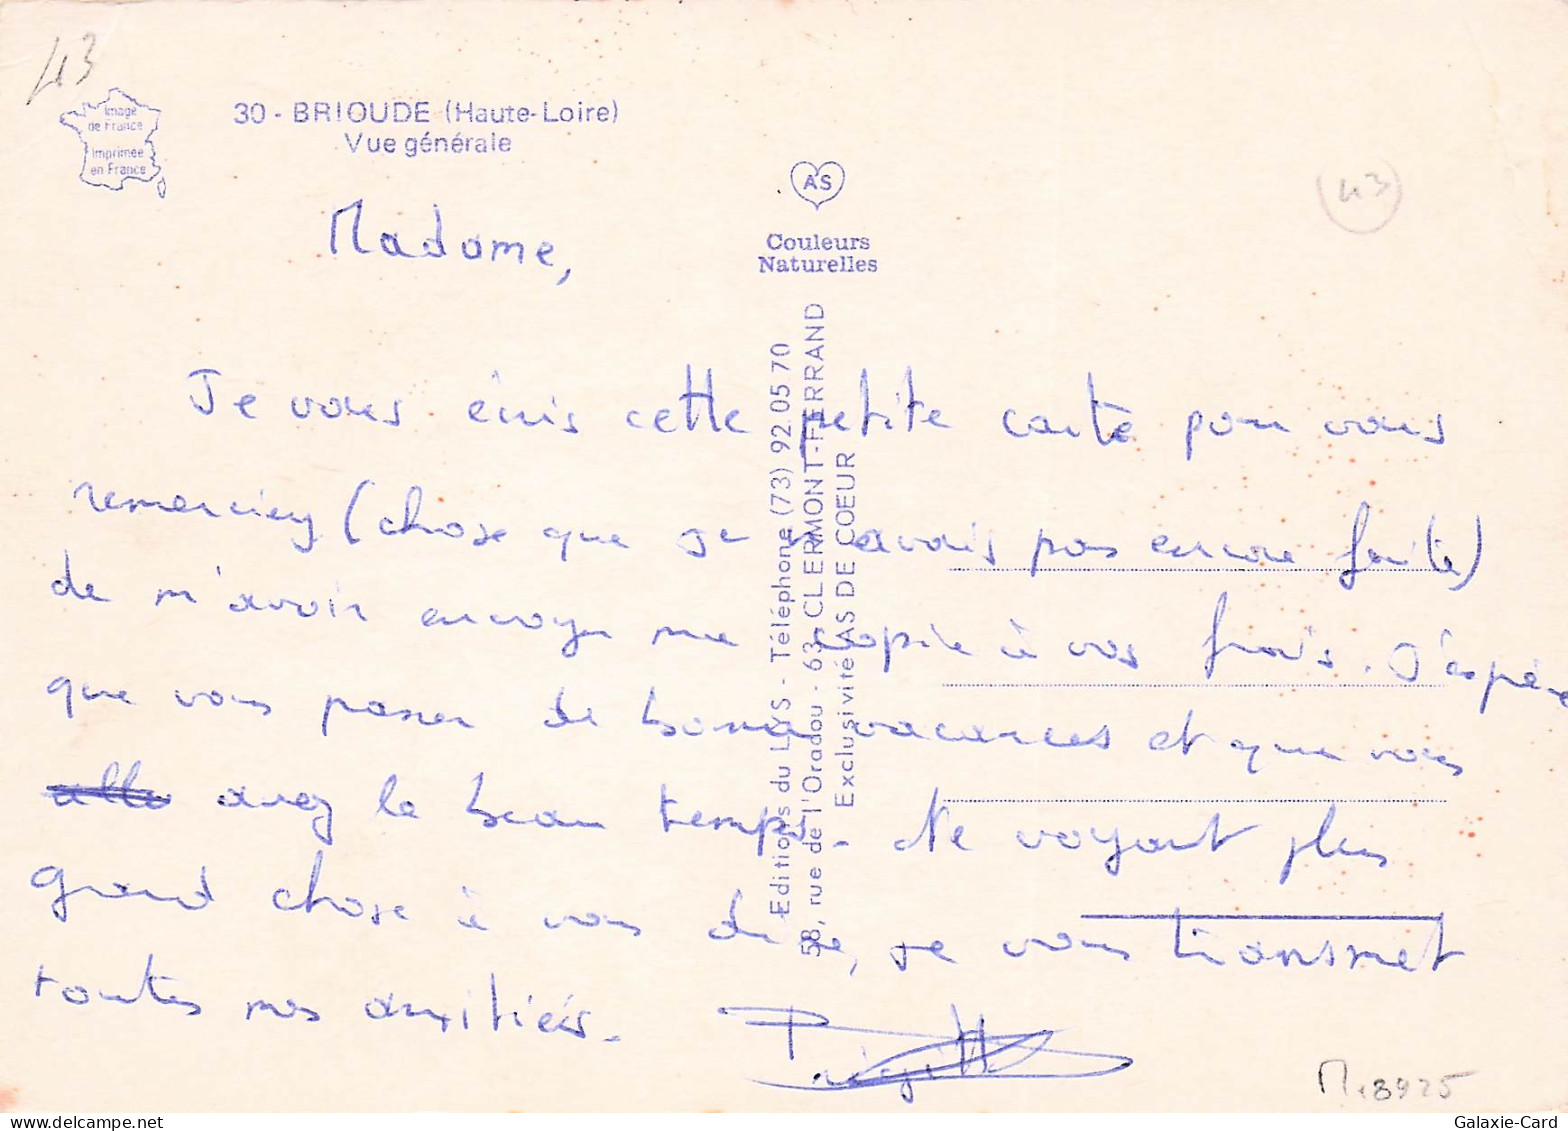 43
Image
de France
Imprimée
en France
30 - BRIOUDE (Haute-Loire)
Vue générale
AS
Couleurs
Naturelles
43
Editions du LYS - Téléphone (73) 92.05 70
58, rue de l'Oradou - 63 - CLERMONT-FERRAND
Exclusivité AS DE COEUR
Madame,
Je vous écris cette petite carte pour vous
remerciez (chose que je n'avais pas encore faite)
de m'avoir envoyer ma copie à vos frais. J'espère
que vous passer de bonnes vacances et que vous
avez le beau temps. Ne voyant plus
grand chose à vous dire, je vous transmet
toutes mes amitiés.
Brigitte
M.8925
Galaxie-Card